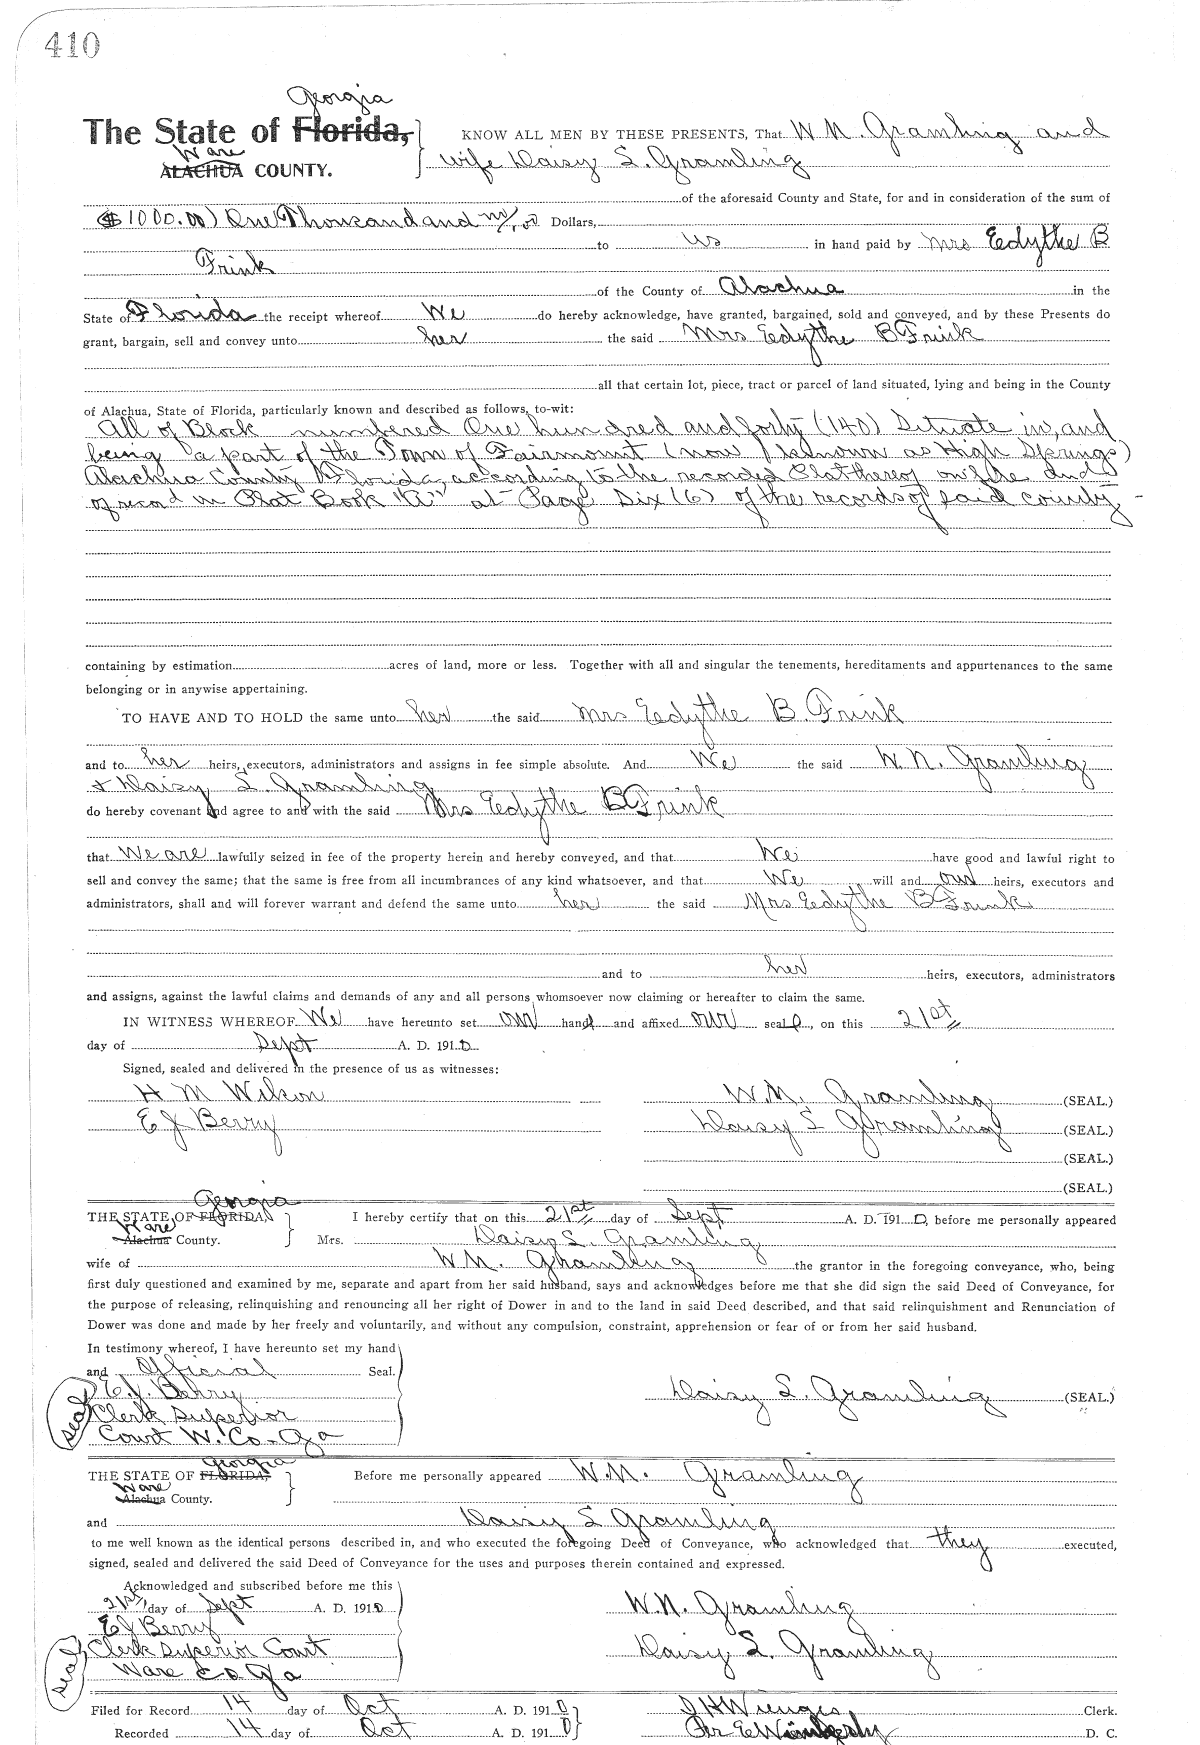 410
Georgia
The State of Florida, KNOW ALL MEN BY THESE PRESENTS, That W. N. Gramling and
Ware
ALACHUA COUNTY. wife Daisy S. Gramling
of the aforesaid County and State, for and in consideration of the sum of
($1000.00) One Thousand and no/00 Dollars,
to us in hand paid by Mrs Eedythe B
Frink
of the County of Alachua in the
State of Florida the receipt whereof We do hereby acknowledge, have granted, bargained, sold and conveyed, and by these Presents do
grant, bargain, sell and convey unto her the said Mrs Eedythe B Frink
all that certain lot, piece, tract or parcel of land situated, lying and being in the County
of Alachua, State of Florida, particularly known and described as follows, to-wit:
All of Block numbered One hundred and forty (140) Situate in, and
being a part of the Town of Fairmount (now known as High Springs)
Alachua County Florida, according to the recorded Plat thereof on file and
of record in Plat Book "A" at Page Six (6) of the records of said county-
containing by estimation acres of land, more or less. Together with all and singular the tenements, hereditaments and appurtenances to the same
belonging or in anywise appertaining.
TO HAVE AND TO HOLD the same unto her the said Mrs Eedythe B. Frink
and to her heirs, executors, administrators and assigns in fee simple absolute. And We the said W. N. Gramling
& Daisy S. Gramling
do hereby covenant and agree to and with the said Mrs Eedythe B Frink
that We are lawfully seized in fee of the property herein and hereby conveyed, and that We have good and lawful right to
sell and convey the same; that the same is free from all incumbrances of any kind whatsoever, and that We will and our heirs, executors and
administrators, shall and will forever warrant and defend the same unto her the said Mrs Eedythe B Frink
and to her heirs, executors, administrators
and assigns, against the lawful claims and demands of any and all persons whomsoever now claiming or hereafter to claim the same.
IN WITNESS WHEREOF We have hereunto set our hand and affixed our seal, on this 21st
day of Sept A. D. 1910
Signed, sealed and delivered in the presence of us as witnesses:
H M Wilson W. N. Gramling (SEAL.)
E J Berry Daisy S Gramling (SEAL.)
(SEAL.)
(SEAL.)
Georgia
THE STATE OF FLORIDA, I hereby certify that on this 21st day of Sept A. D. 1910, before me personally appeared
Ware
Alachua County. Mrs. Daisy S. Gramling
wife of W. N. Gramling the grantor in the foregoing conveyance, who, being
first duly questioned and examined by me, separate and apart from her said husband, says and acknowledges before me that she did sign the said Deed of Conveyance, for
the purpose of releasing, relinquishing and renouncing all her right of Dower in and to the land in said Deed described, and that said relinquishment and Renunciation of
Dower was done and made by her freely and voluntarily, and without any compulsion, constraint, apprehension or fear of or from her said husband.
In testimony whereof, I have hereunto set my hand
and Official Seal.
E. J. Berry Daisy S. Gramling (SEAL.)
seal Clerk Superior
Court W. Co. Ga
Georgia
THE STATE OF FLORIDA, Before me personally appeared W. N. Gramling
Ware
Alachua County.
and Daisy S Gramling
to me well known as the identical persons described in, and who executed the foregoing Deed of Conveyance, who acknowledged that they executed,
signed, sealed and delivered the said Deed of Conveyance for the uses and purposes therein contained and expressed.
Acknowledged and subscribed before me this
21st, day of Sept A. D. 1910 W. N. Gramling
E J Berry
seal Clerk Superior Court Daisy S. Gramling
Ware Co Ga
Filed for Record 14 day of Oct A. D. 1910 S H Wienges Clerk.
Recorded 14 day of Oct A. D. 1910 Per E Wimberly D. C.